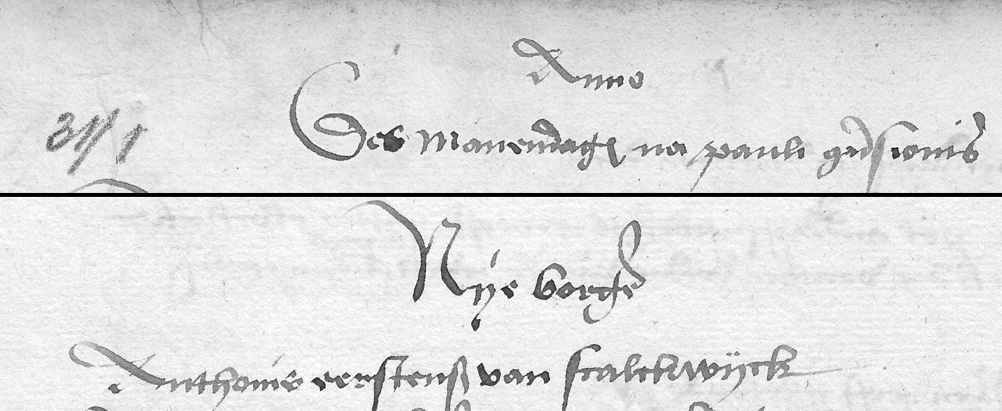 Anno
31/1 Des Manendags na pauli gusionis
Nye borger
Anthonis eerstens van scalckwijck